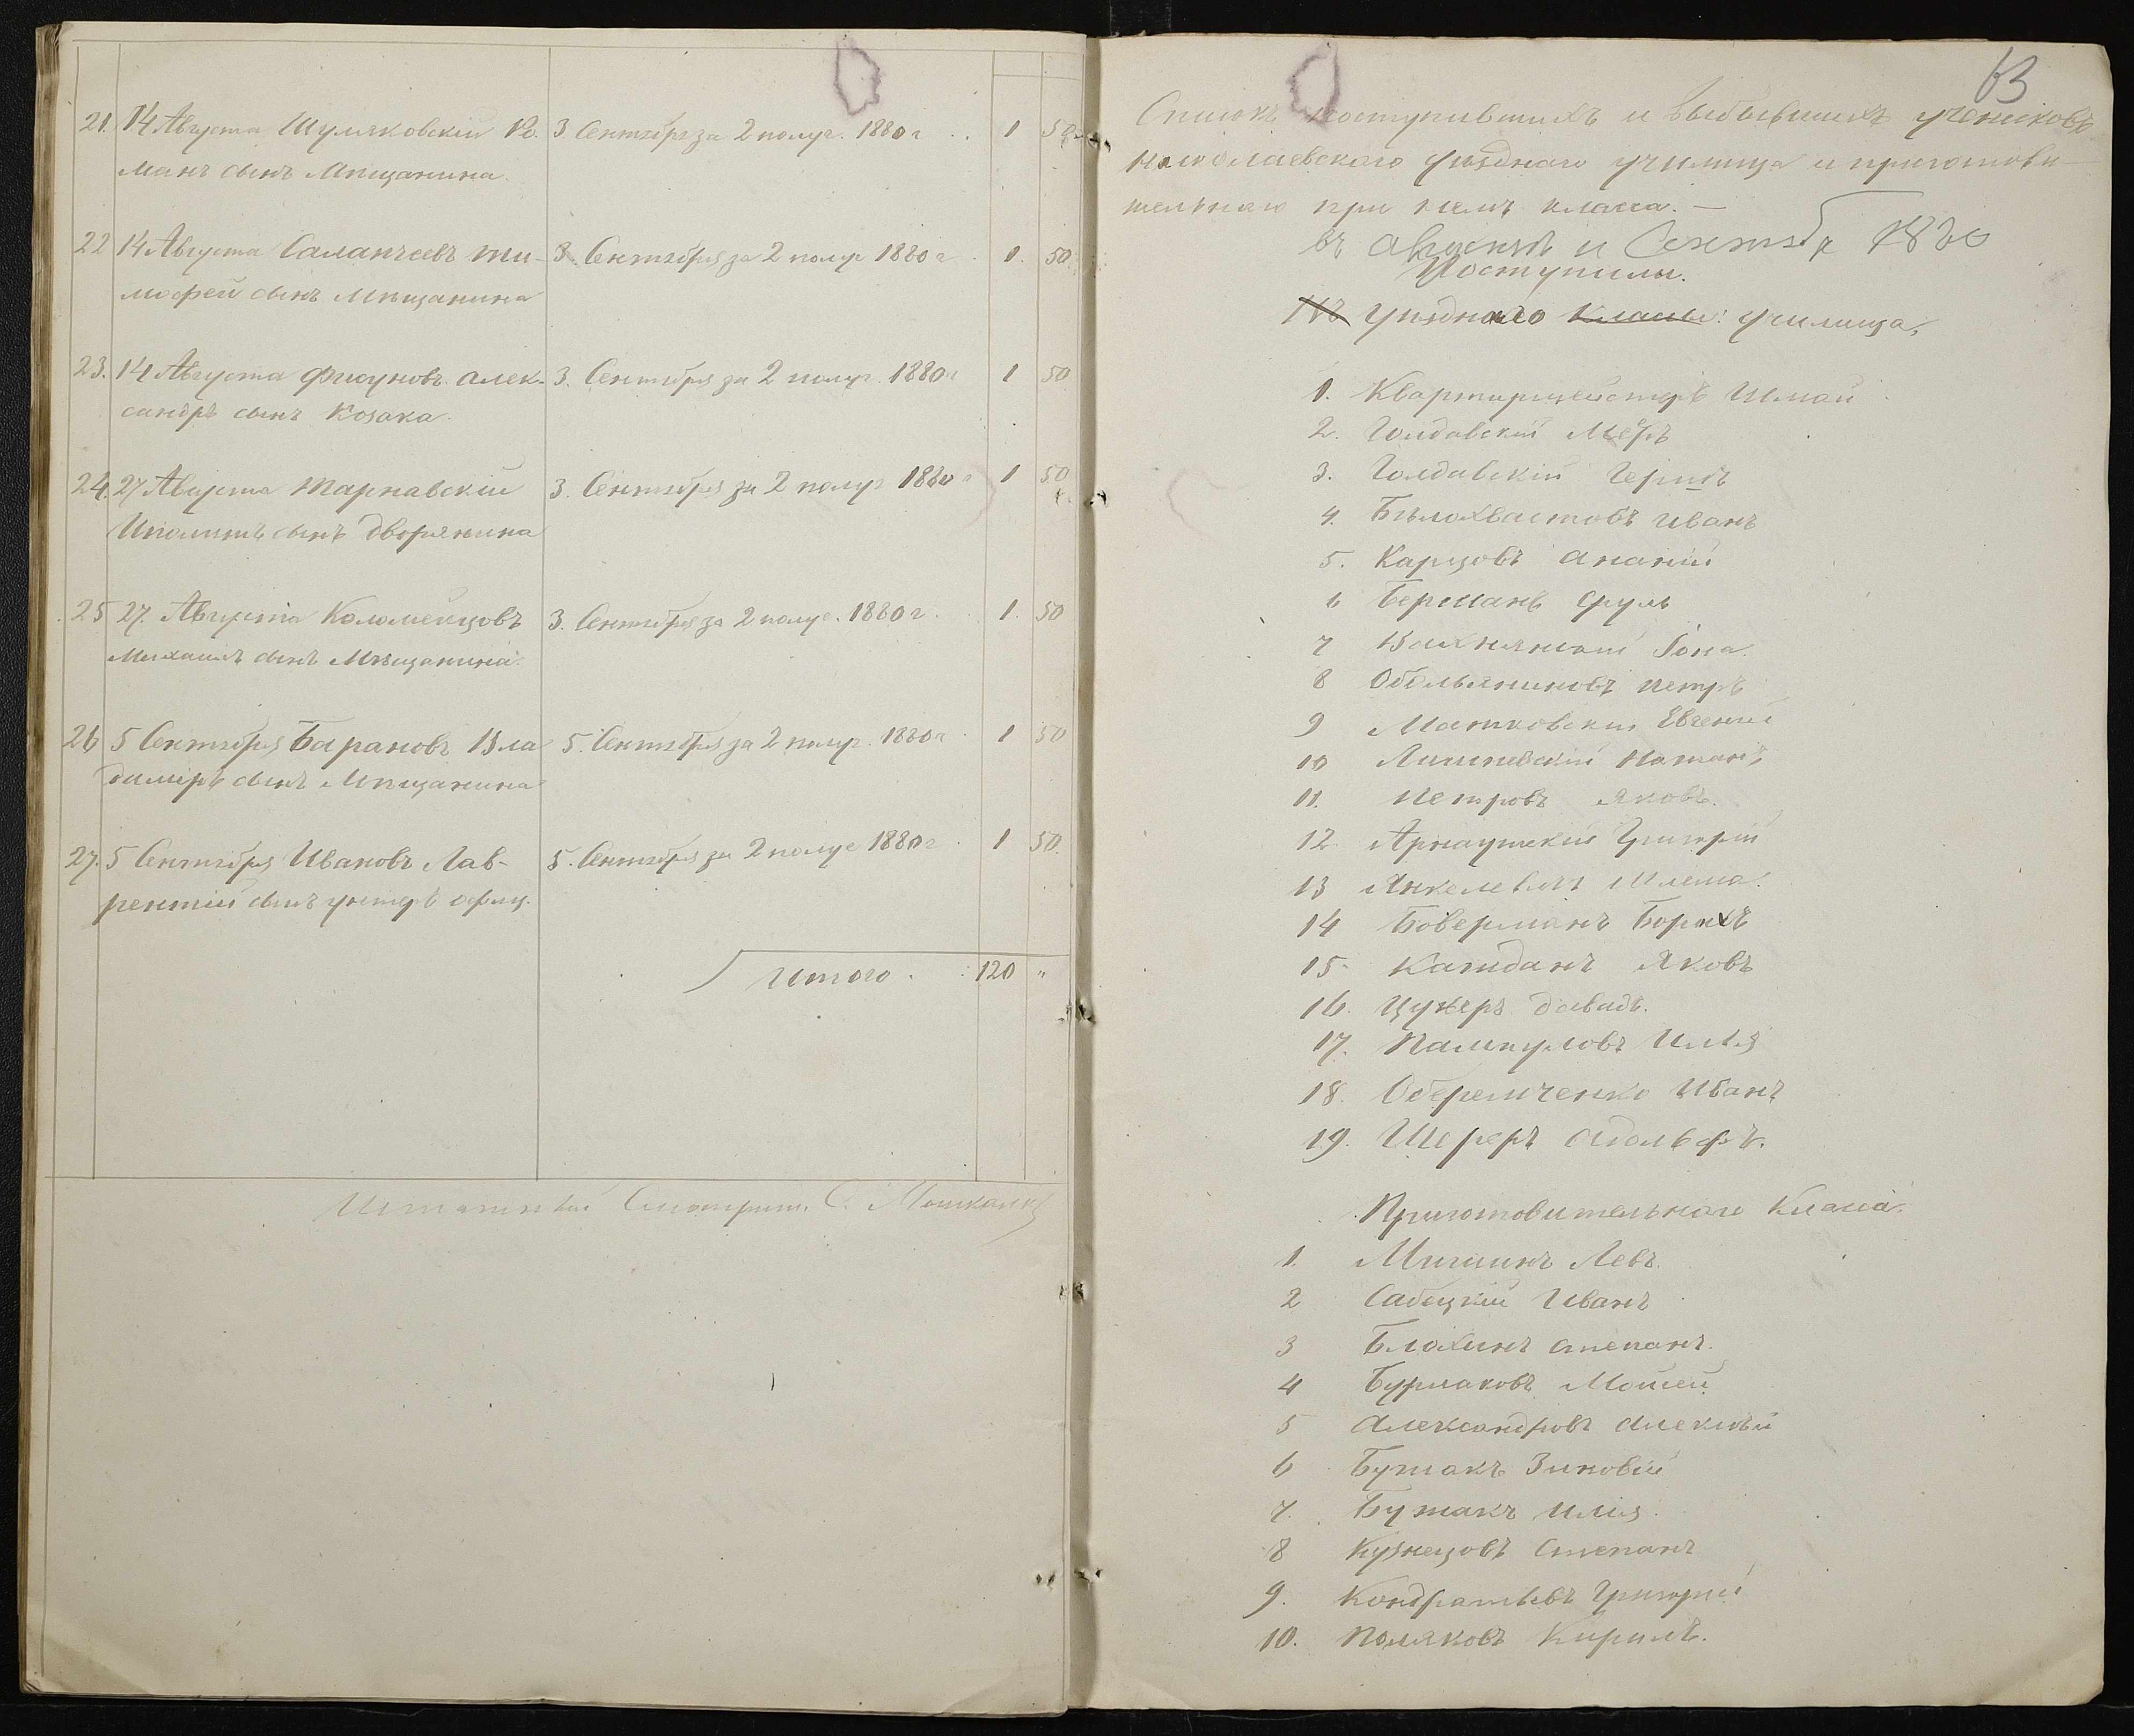 21. 14 Августа Шумяковскій Ро- 3 Сентября за 2 полуг. 1880 г. 1 50
манъ сынъ Мѣщанина.
22 14 Августа Саланчеевъ Ти- 3. Сентября за 2 полуг 1880 г. 1. 50
мофей сынъ Мѣщанина
23. 14 Августа Фисуновъ Алек- 3. Сентября за 2 полуг. 1880 г 1 50
сандръ сынъ Козака.
24. 27 Августа Тарнавскій 3. Сентября за 2 полуг 1880 г 1 50
Иполитъ сынъ Дворянина
25 27. Августа Коломейцовъ 3. Сентября за 2 полуг. 1880 г. 1. 50
Михаилъ сынъ Мѣщанина.
26 5 Сентября Барановъ Вла 5. Сентября за 2 полуг. 1880 г. 1 50
димиръ сынъ Мѣщанина
27. 5 Сентября Ивановъ Лав- 5. Сентября за 2 полуг 1880 г. 1 50.
рентій сынъ унтеръ офиц.
Итого . 120 "
Штатный Смотрит. С.
63
Списокъ поступившихъ и выбывшихъ учениковъ
Николаевскаго уѣзднаго училища и приготови-
тельнаго при немъ класса. —
въ августѣ и Сентябр 1880
Поступили.
Уѣзднаго Классы: училища,
1. Квартирмейстръ
2. Голдовскій Мееръ
3. Голдовскій Гершъ
4. Бѣлохвастовъ Иванъ
5. Карцовъ Ананій
6 Берманъ Сруль
7 Іона.
8 Обольяниновъ Петръ
9 Матковскій Евгений
10 Лишневскій Натанъ
11. Петровъ Яковъ.
12. Арнаутскій Григорій
13 Янкелевичъ Шлема.
14 Боверманъ Борухъ
15. Каждaнъ Яковъ
16. Цукеръ Давидъ.
17. Илья
18. Оберемченко Иванъ
19. Шереръ Адольфъ.
Приготовительнаго Класса.
1. Мигинъ Левъ.
2 Сабецкій Иванъ
3 Блохинъ Степанъ.
4 Бурлаковъ Мойсей
5 Александровъ Алексѣй
6 Бутакъ Зиновій
7. Бутакъ Илія.
8 Кузнецовъ Степанъ
9. Кондратьевъ Григорій
10. Поляковъ Кирилъ.